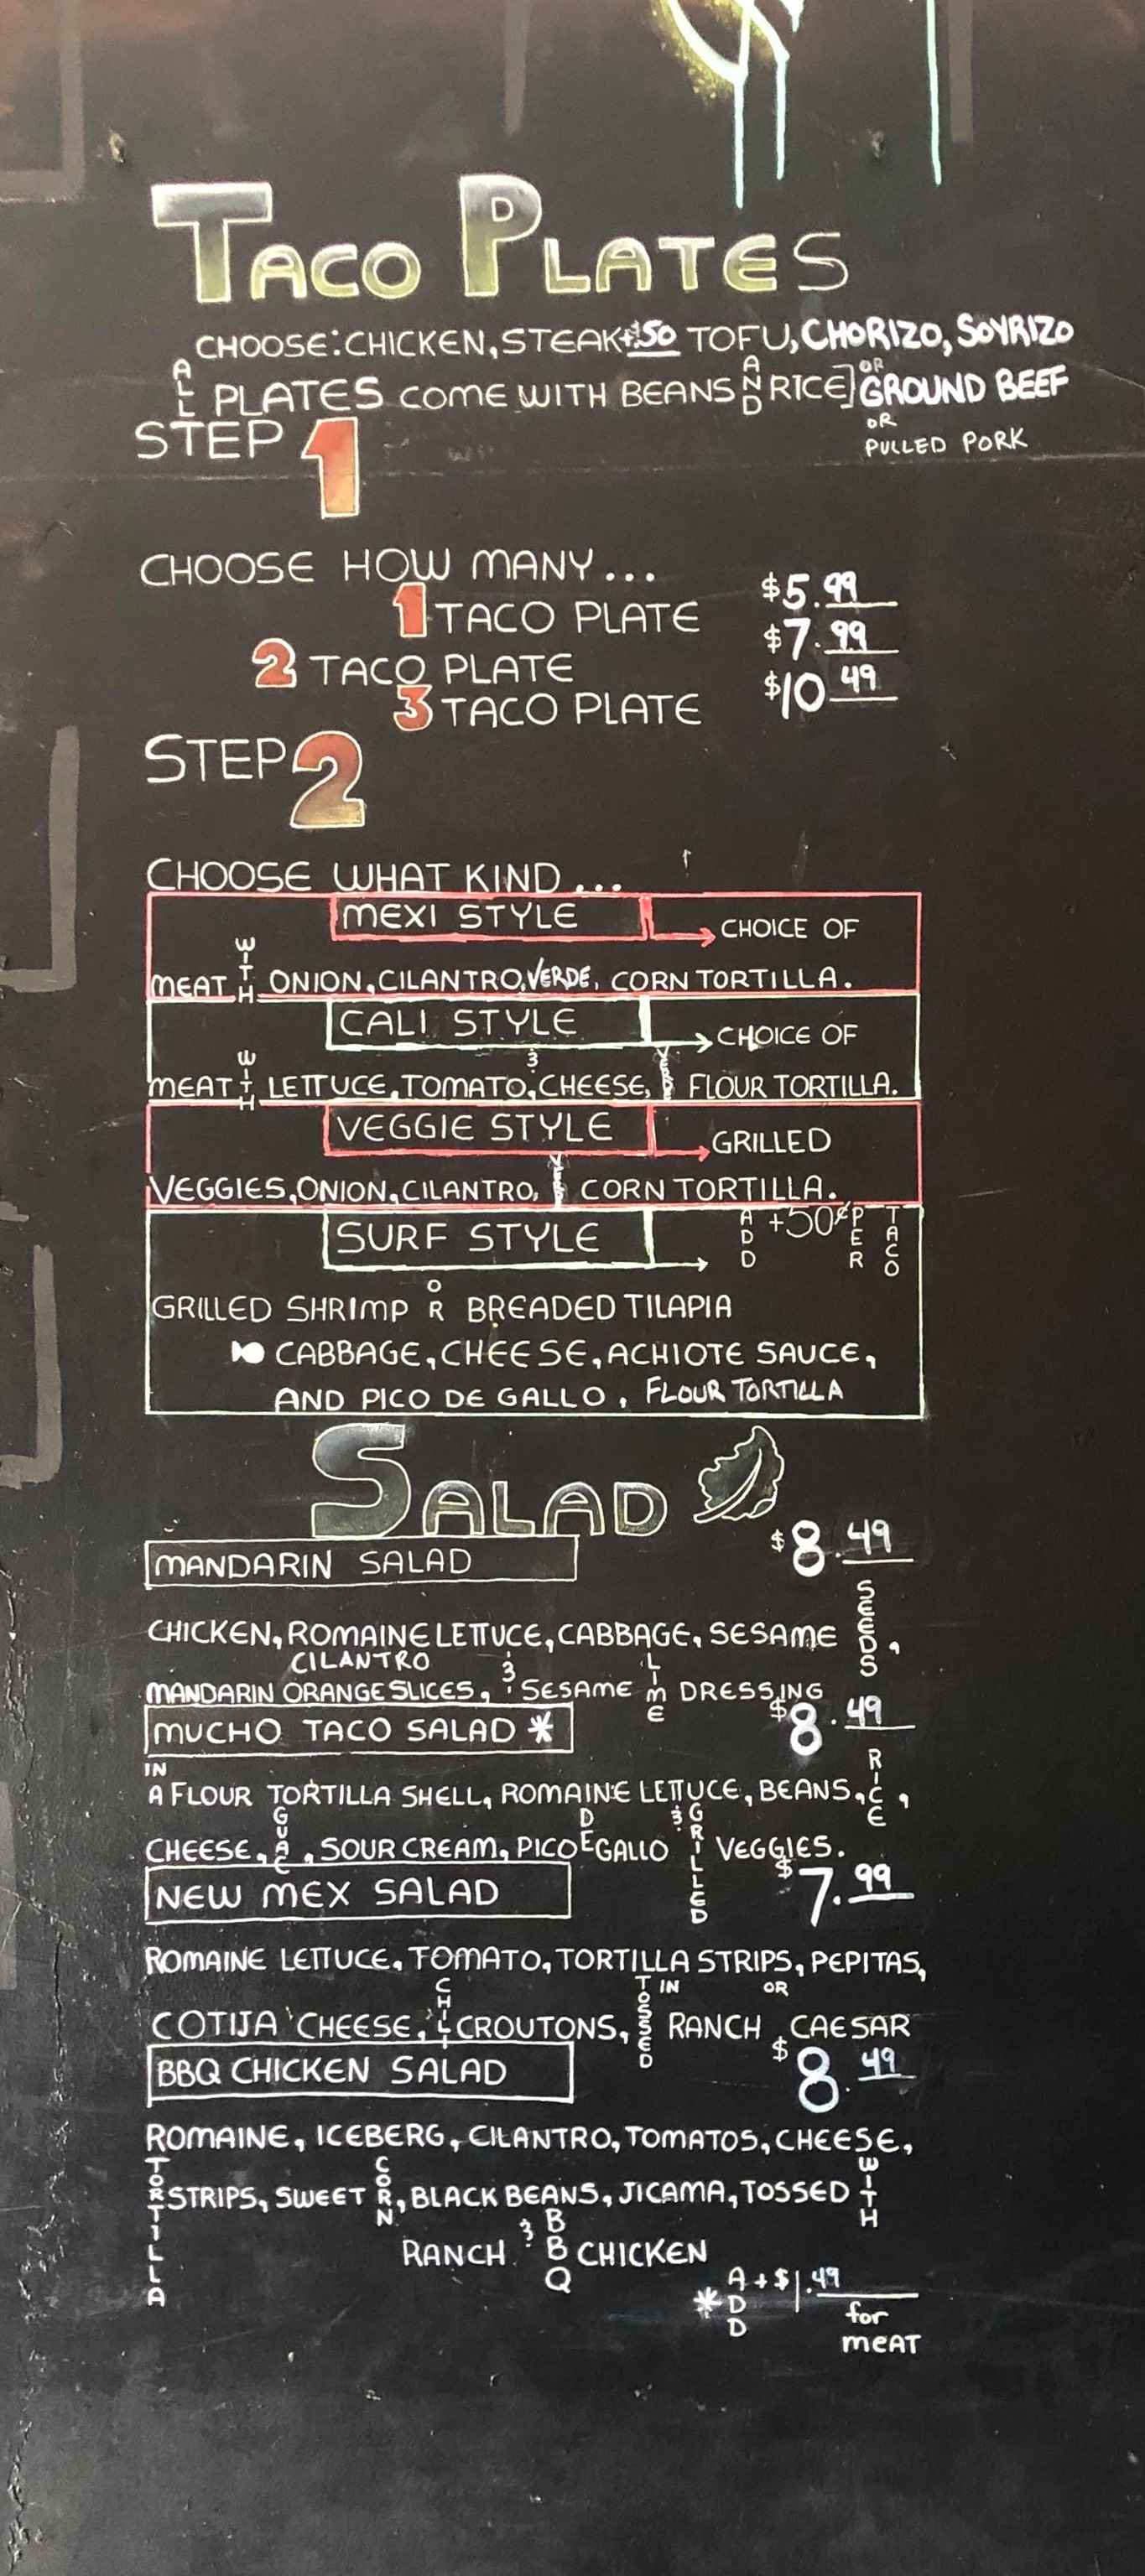 TACO PLATES
CHOOSE: CHICKEN, STEAK+$.50 TOFU, CHORIZO, SOYRIZO
ALL PLATES COME WITH BEANS AND RICE] OR GROUND BEEF
OR
PULLED PORK
STEP 1
CHOOSE HOW MANY...
1 TACO PLATE $5.99
2 TACO PLATE $7.99
3 TACO PLATE $10.49
STEP 2
CHOOSE WHAT KIND...
MEXI STYLE → CHOICE OF
MEAT WITH ONION, CILANTRO, VERDE, CORN TORTILLA.
CALI STYLE → CHOICE OF
MEAT WITH LETTUCE, TOMATO, & CHEESE, VERDE FLOUR TORTILLA.
VEGGIE STYLE → GRILLED
VEGGIES, ONION, CILANTRO, VERDE CORN TORTILLA.
SURF STYLE → ADD +50¢ PER TACO
GRILLED SHRIMP OR BREADED TILAPIA
CABBAGE, CHEESE, ACHIOTE SAUCE,
AND PICO DE GALLO, FLOUR TORTILLA
SALAD
MANDARIN SALAD $8.49
CHICKEN, ROMAINE LETTUCE, CABBAGE, SESAME SEEDS,
CILANTRO
MANDARIN ORANGE SLICES, & SESAME LIME DRESSING
MUCHO TACO SALAD * $8.49
IN
A FLOUR TORTILLA SHELL, ROMAINE LETTUCE, BEANS, RICE,
CHEESE, GUAC, SOUR CREAM, PICO DE GALLO & GRILLED VEGGIES.
NEW MEX SALAD $7.99
ROMAINE LETTUCE, TOMATO, TORTILLA STRIPS, PEPITAS,
COTIJA CHEESE, CHILI CROUTONS, TOSSED IN RANCH OR CAESAR
BBQ CHICKEN SALAD $8.49
ROMAINE, ICEBERG, CILANTRO, TOMATOS, CHEESE,
TORTILLA STRIPS, SWEET CORN, BLACK BEANS, JICAMA, TOSSED WITH
RANCH & BBQ CHICKEN
* ADD +$1.49
for
MEAT